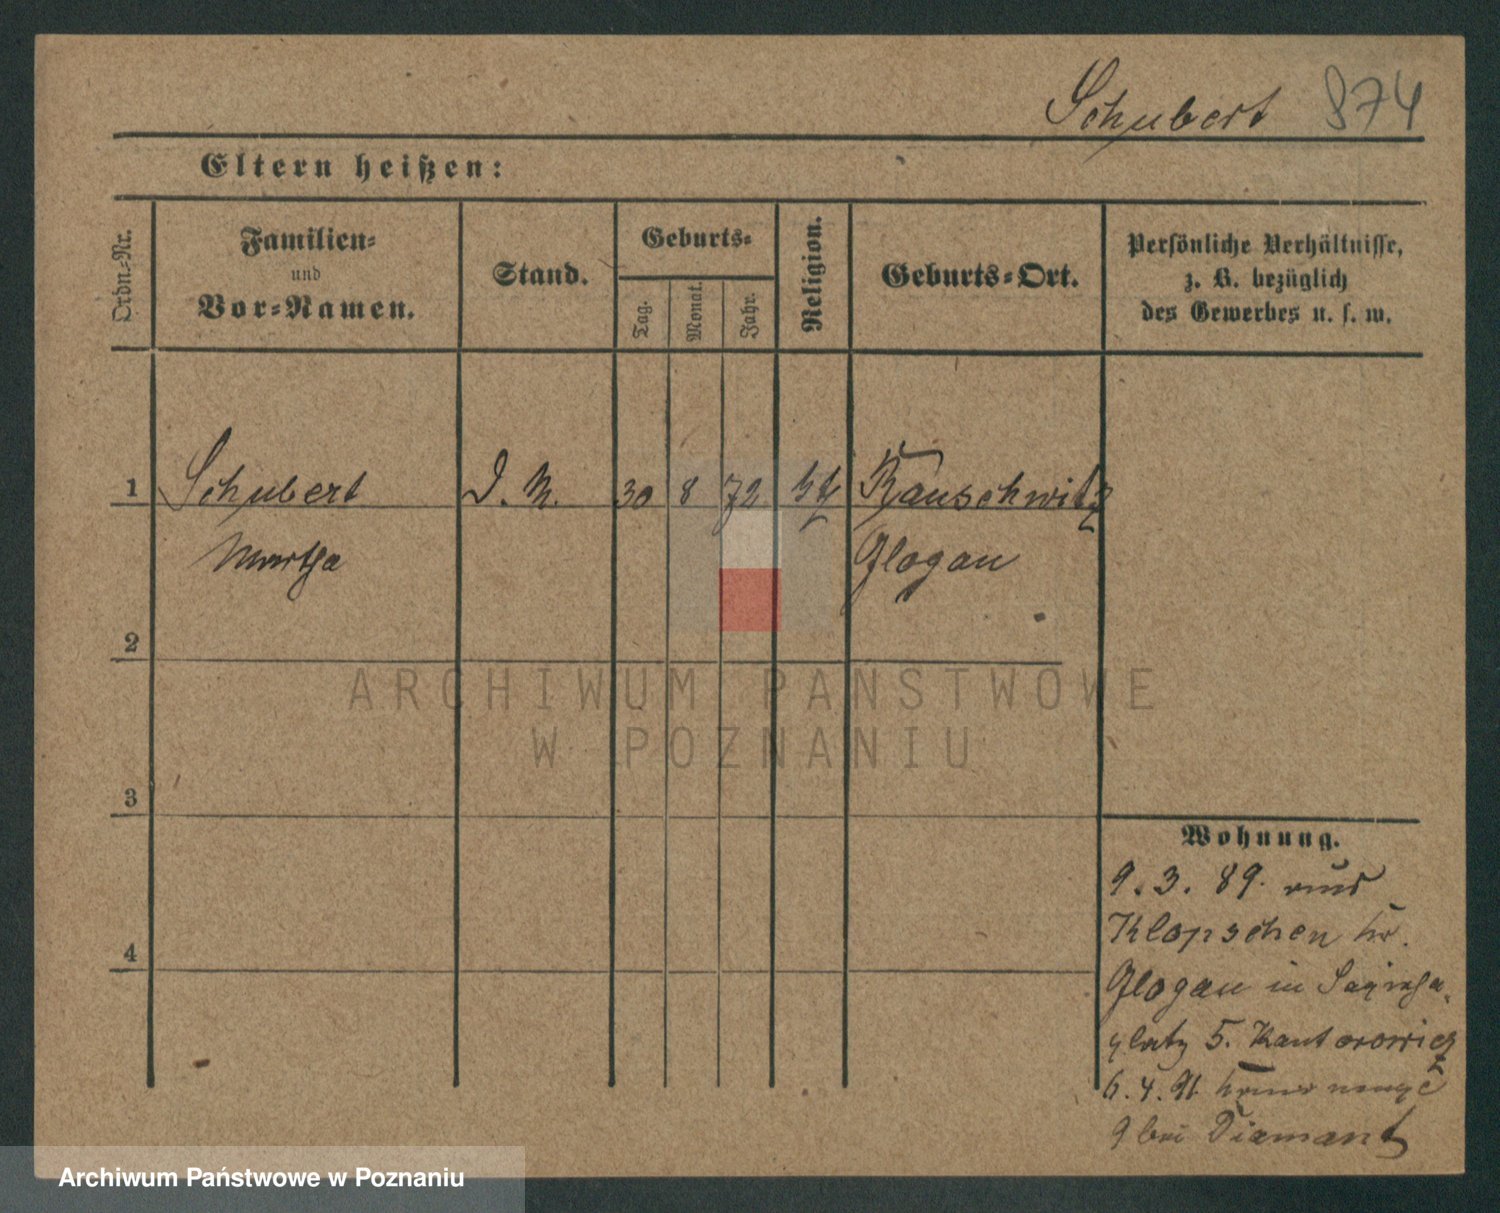 Schubert 874
Eltern heißen:
Ordn.-Nr.
Familien-
und
Vor-Namen.
Stand.
Geburts-
Tag.
Monat.
Jahr.
Religion.
Geburts-Ort.
Persönliche Verhältnisse,
z. B. bezüglich
des Gewerbes u. s. w.
1 Schubert D. M. 30 8 72 Rauschwitz
Martha Glogau
2
3
4
Wohnung.
9. 3. 89. aus
Klopschen Kr.
Glogau in Sapieha-
platz 5. Kantorowicz
6. 4. 91
9 bei Diamant
ARCHIWUM PAŃSTWOWE
W POZNANIU
Archiwum Państwowe w Poznaniu